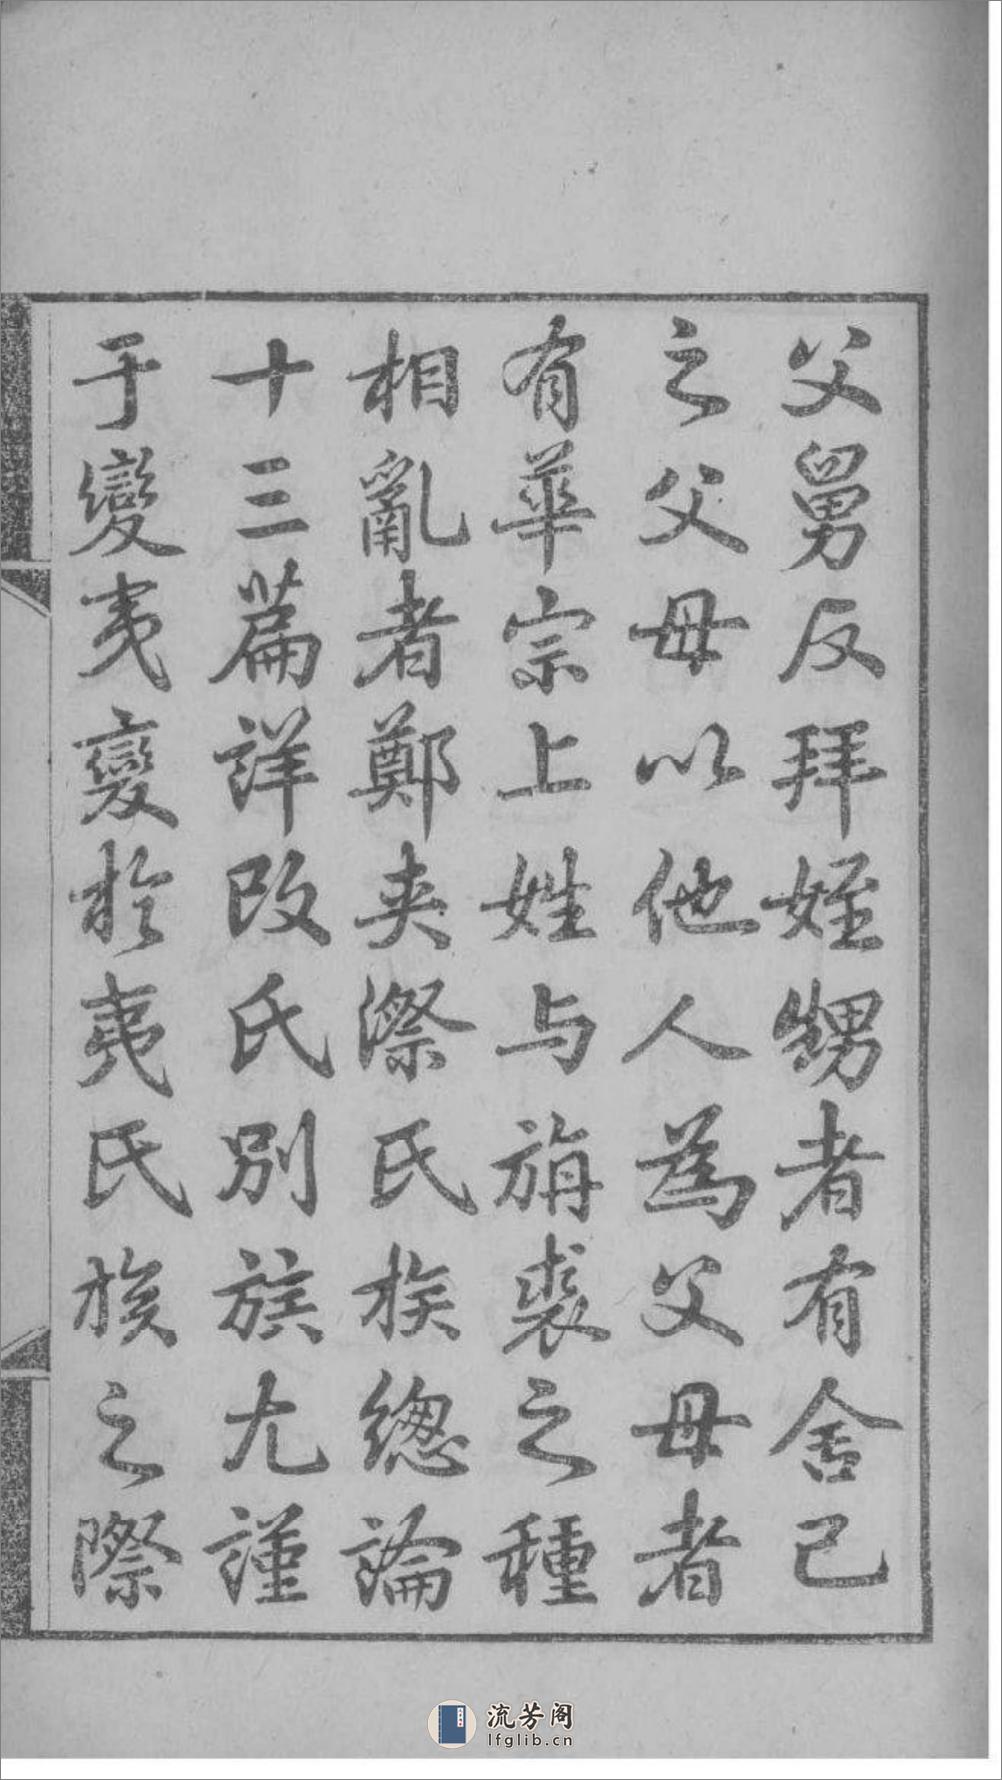 父舅反拜姪甥者有舍己
之父母以他人為父母者
有華宗上姓与旃裘之種
相亂者鄭夹漈氏族總論
十三篇詳改氏別族尤謹
于變夷變於夷氏族之際
流芳阁
lfglib.cn